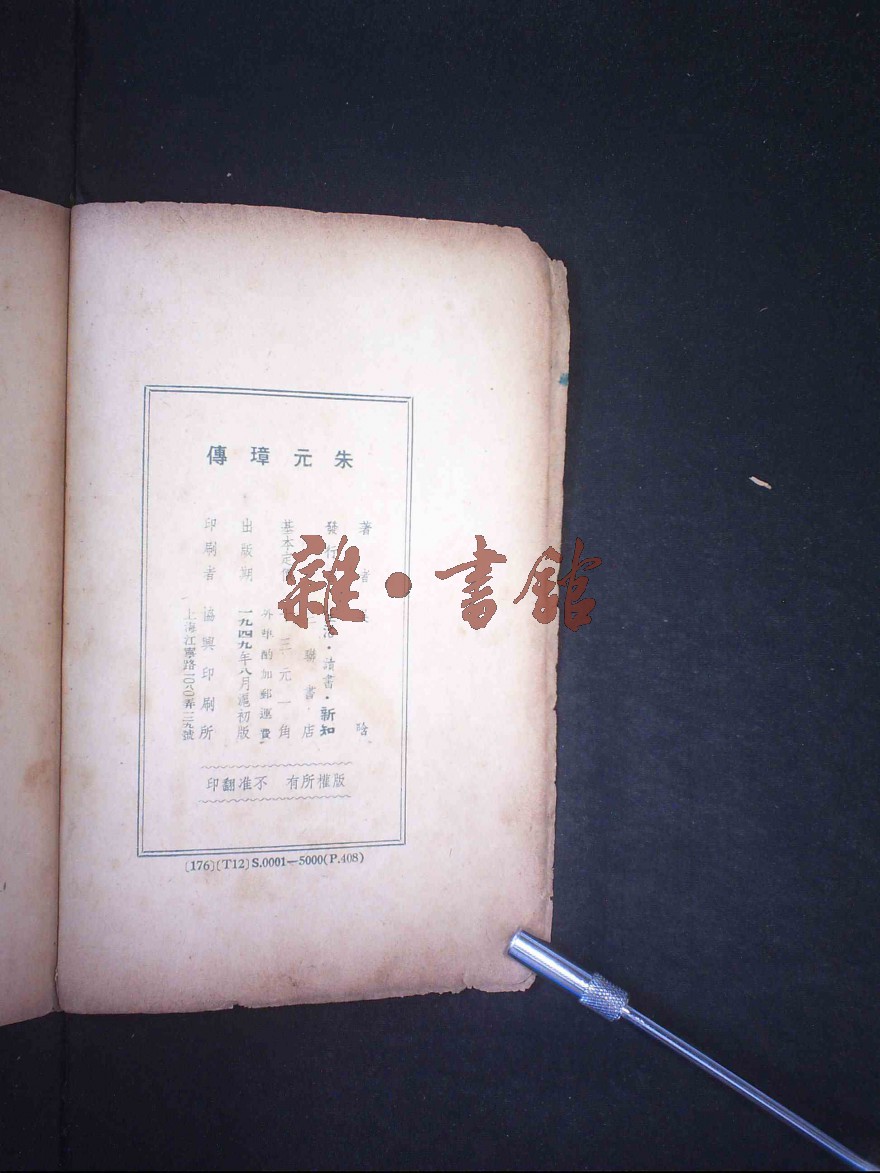 朱元璋傳
著者 吳晗
發行 生活·讀書·新知
三聯書店
基本定價 三元一角
外埠酌加郵運費
出版期 一九四九年八月滬初版
印刷者 協興印刷所
上海江寧路一〇八〇弄一二九號
版權所有 不准翻印
(176)(T12)S.0001—5000(P.408)
雜·書館